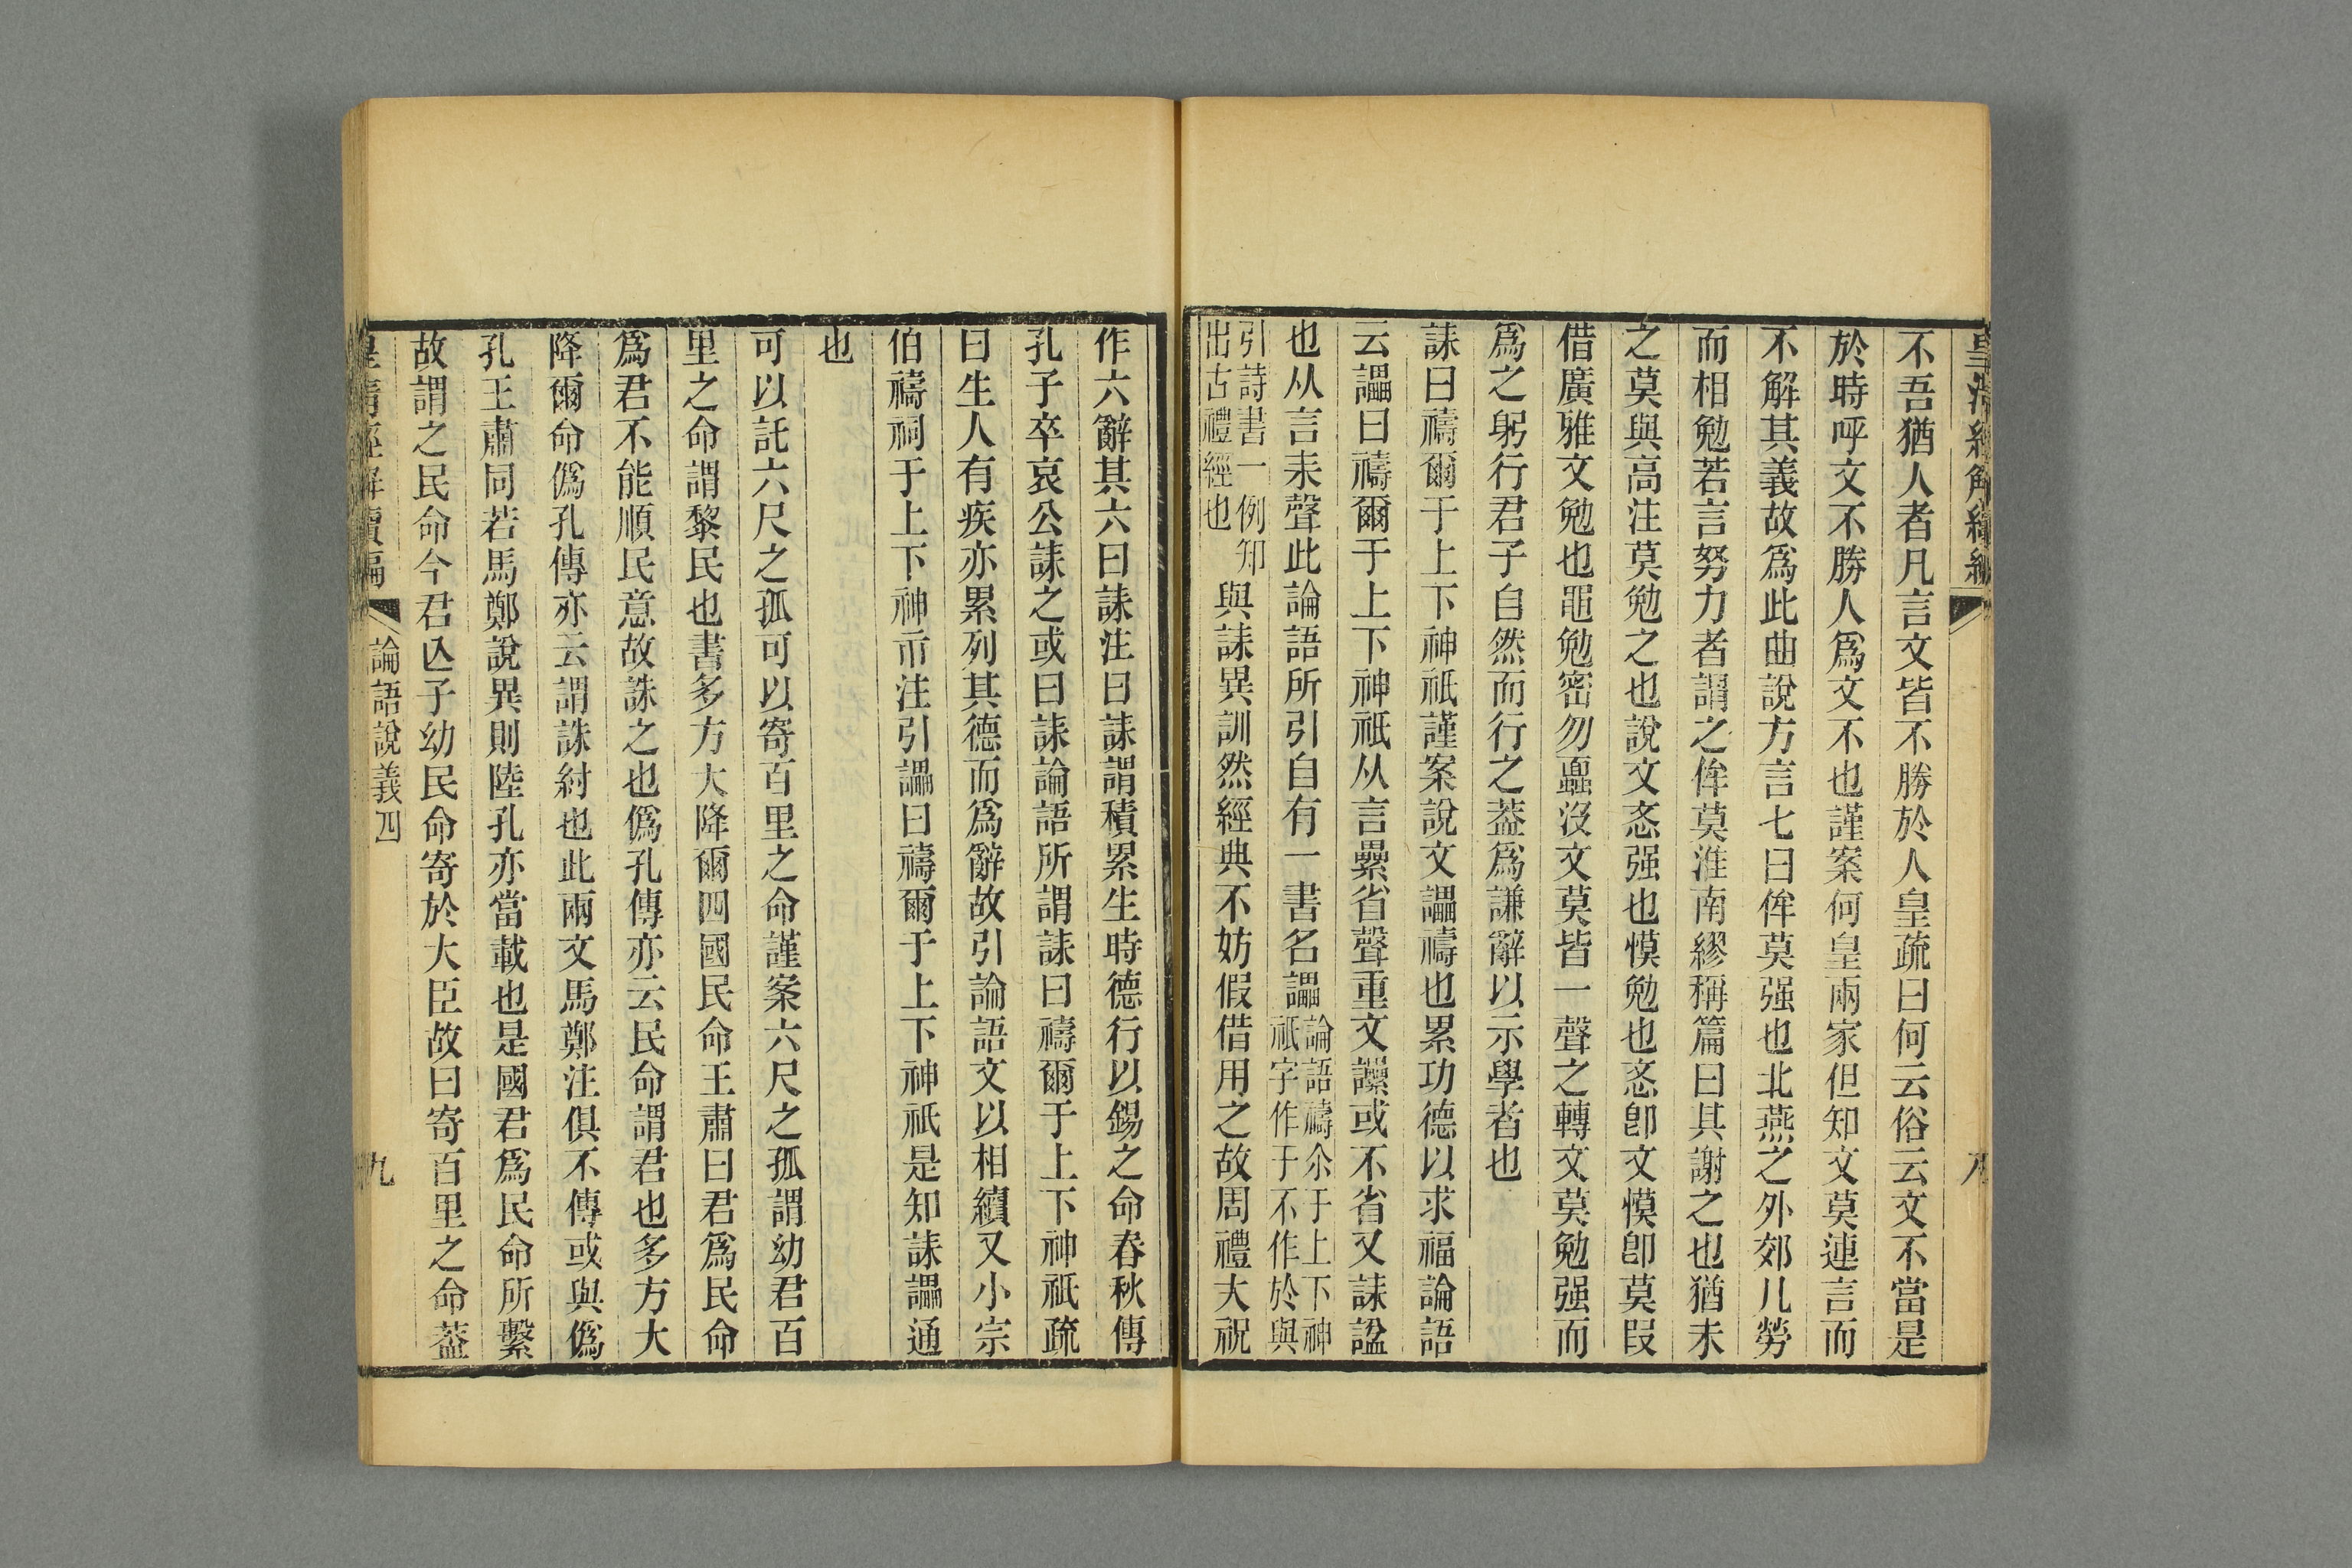 皇清經解續編 八
不吾猶人者凡言文皆不勝於人皇疏曰何云俗云文不當是
於時呼文不勝人爲文不也謹案何皇兩家但知文莫連言而
不解其義故爲此曲說方言七曰侔莫强也北燕之外郊凡勞
而相勉若言努力者謂之侔莫淮南繆稱篇曰其謝之也猶未
之莫與高注莫勉之也說文忞强也慔勉也忞卽文慔卽莫叚
借廣雅文勉也黽勉密勿蠠沒文莫皆一聲之轉文莫勉强而
爲之躬行君子自然而行之葢爲謙辭以示學者也
誄曰禱爾于上下神祇謹案說文讄禱也累功德以求福論語
云讄曰禱爾于上下神祇从言纍省聲重文𧮢或不省又誄諡
也从言耒聲此論語所引自有一書名讄論語禱尒于上下神
祇字作于不作於與
引詩書一例知
出古禮經也與誄異訓然經典不妨假借用之故周禮大祝
作六辭其六曰誄注曰誄謂積累生時德行以錫之命春秋傳
孔子卒哀公誄之或曰誄論語所謂誄曰禱爾于上下神祇疏
曰生人有疾亦累列其德而爲辭故引論語文以相續又小宗
伯禱祠于上下神示注引讄曰禱爾于上下神祇是知誄讄通
也
可以託六尺之孤可以寄百里之命謹案六尺之孤謂幼君百
里之命謂黎民也書多方大降爾四國民命王肅曰君爲民命
爲君不能順民意故誅之也僞孔傳亦云民命謂君也多方大
降爾命僞孔傳亦云謂誅紂也此兩文馬鄭注俱不傳或與僞
孔王肅同若馬鄭說異則陸孔亦當載也是國君爲民命所繫
故謂之民命今君亾子幼民命寄於大臣故曰寄百里之命葢
皇清經解續編 論語說義四 九